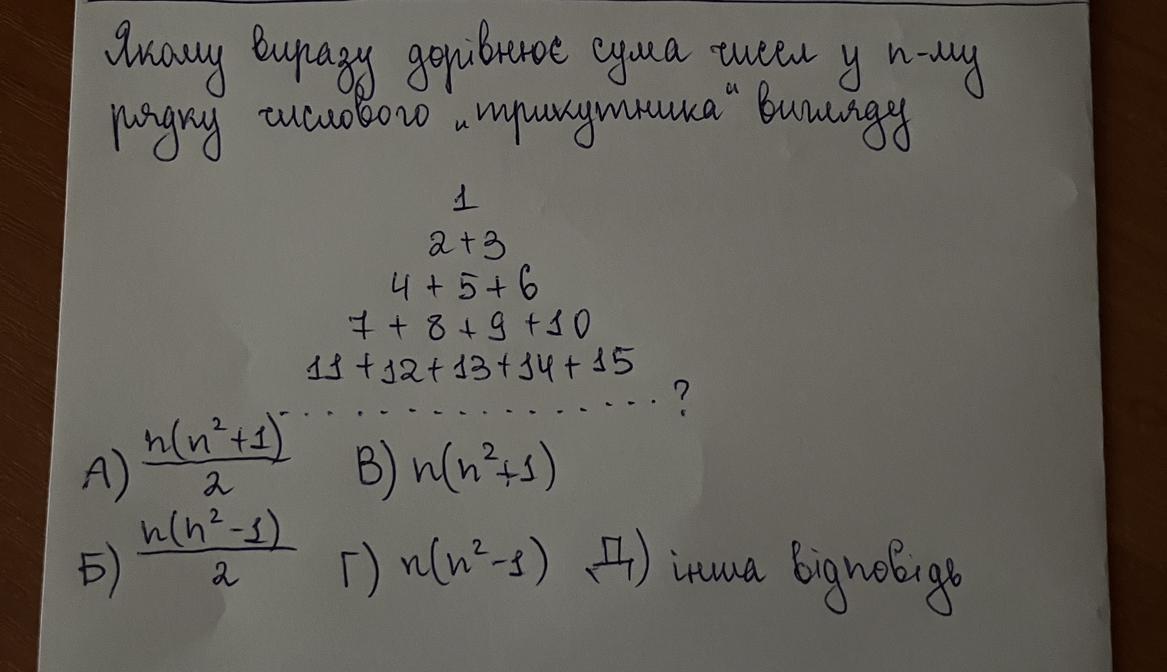 Якому виразу дорівнює сума чисел у n-му
рядку числового „трикутника“ вигляду
1
2+3
4 + 5 + 6
7 + 8 + 9 + 10
11 + 12 + 13 + 14 + 15
. . . . . . . . . . . . . . . . ?
А) n(n²+1)/2 В) n(n²+1)
Б) n(n²-1)/2 Г) n(n²-1) Д) інша відповідь